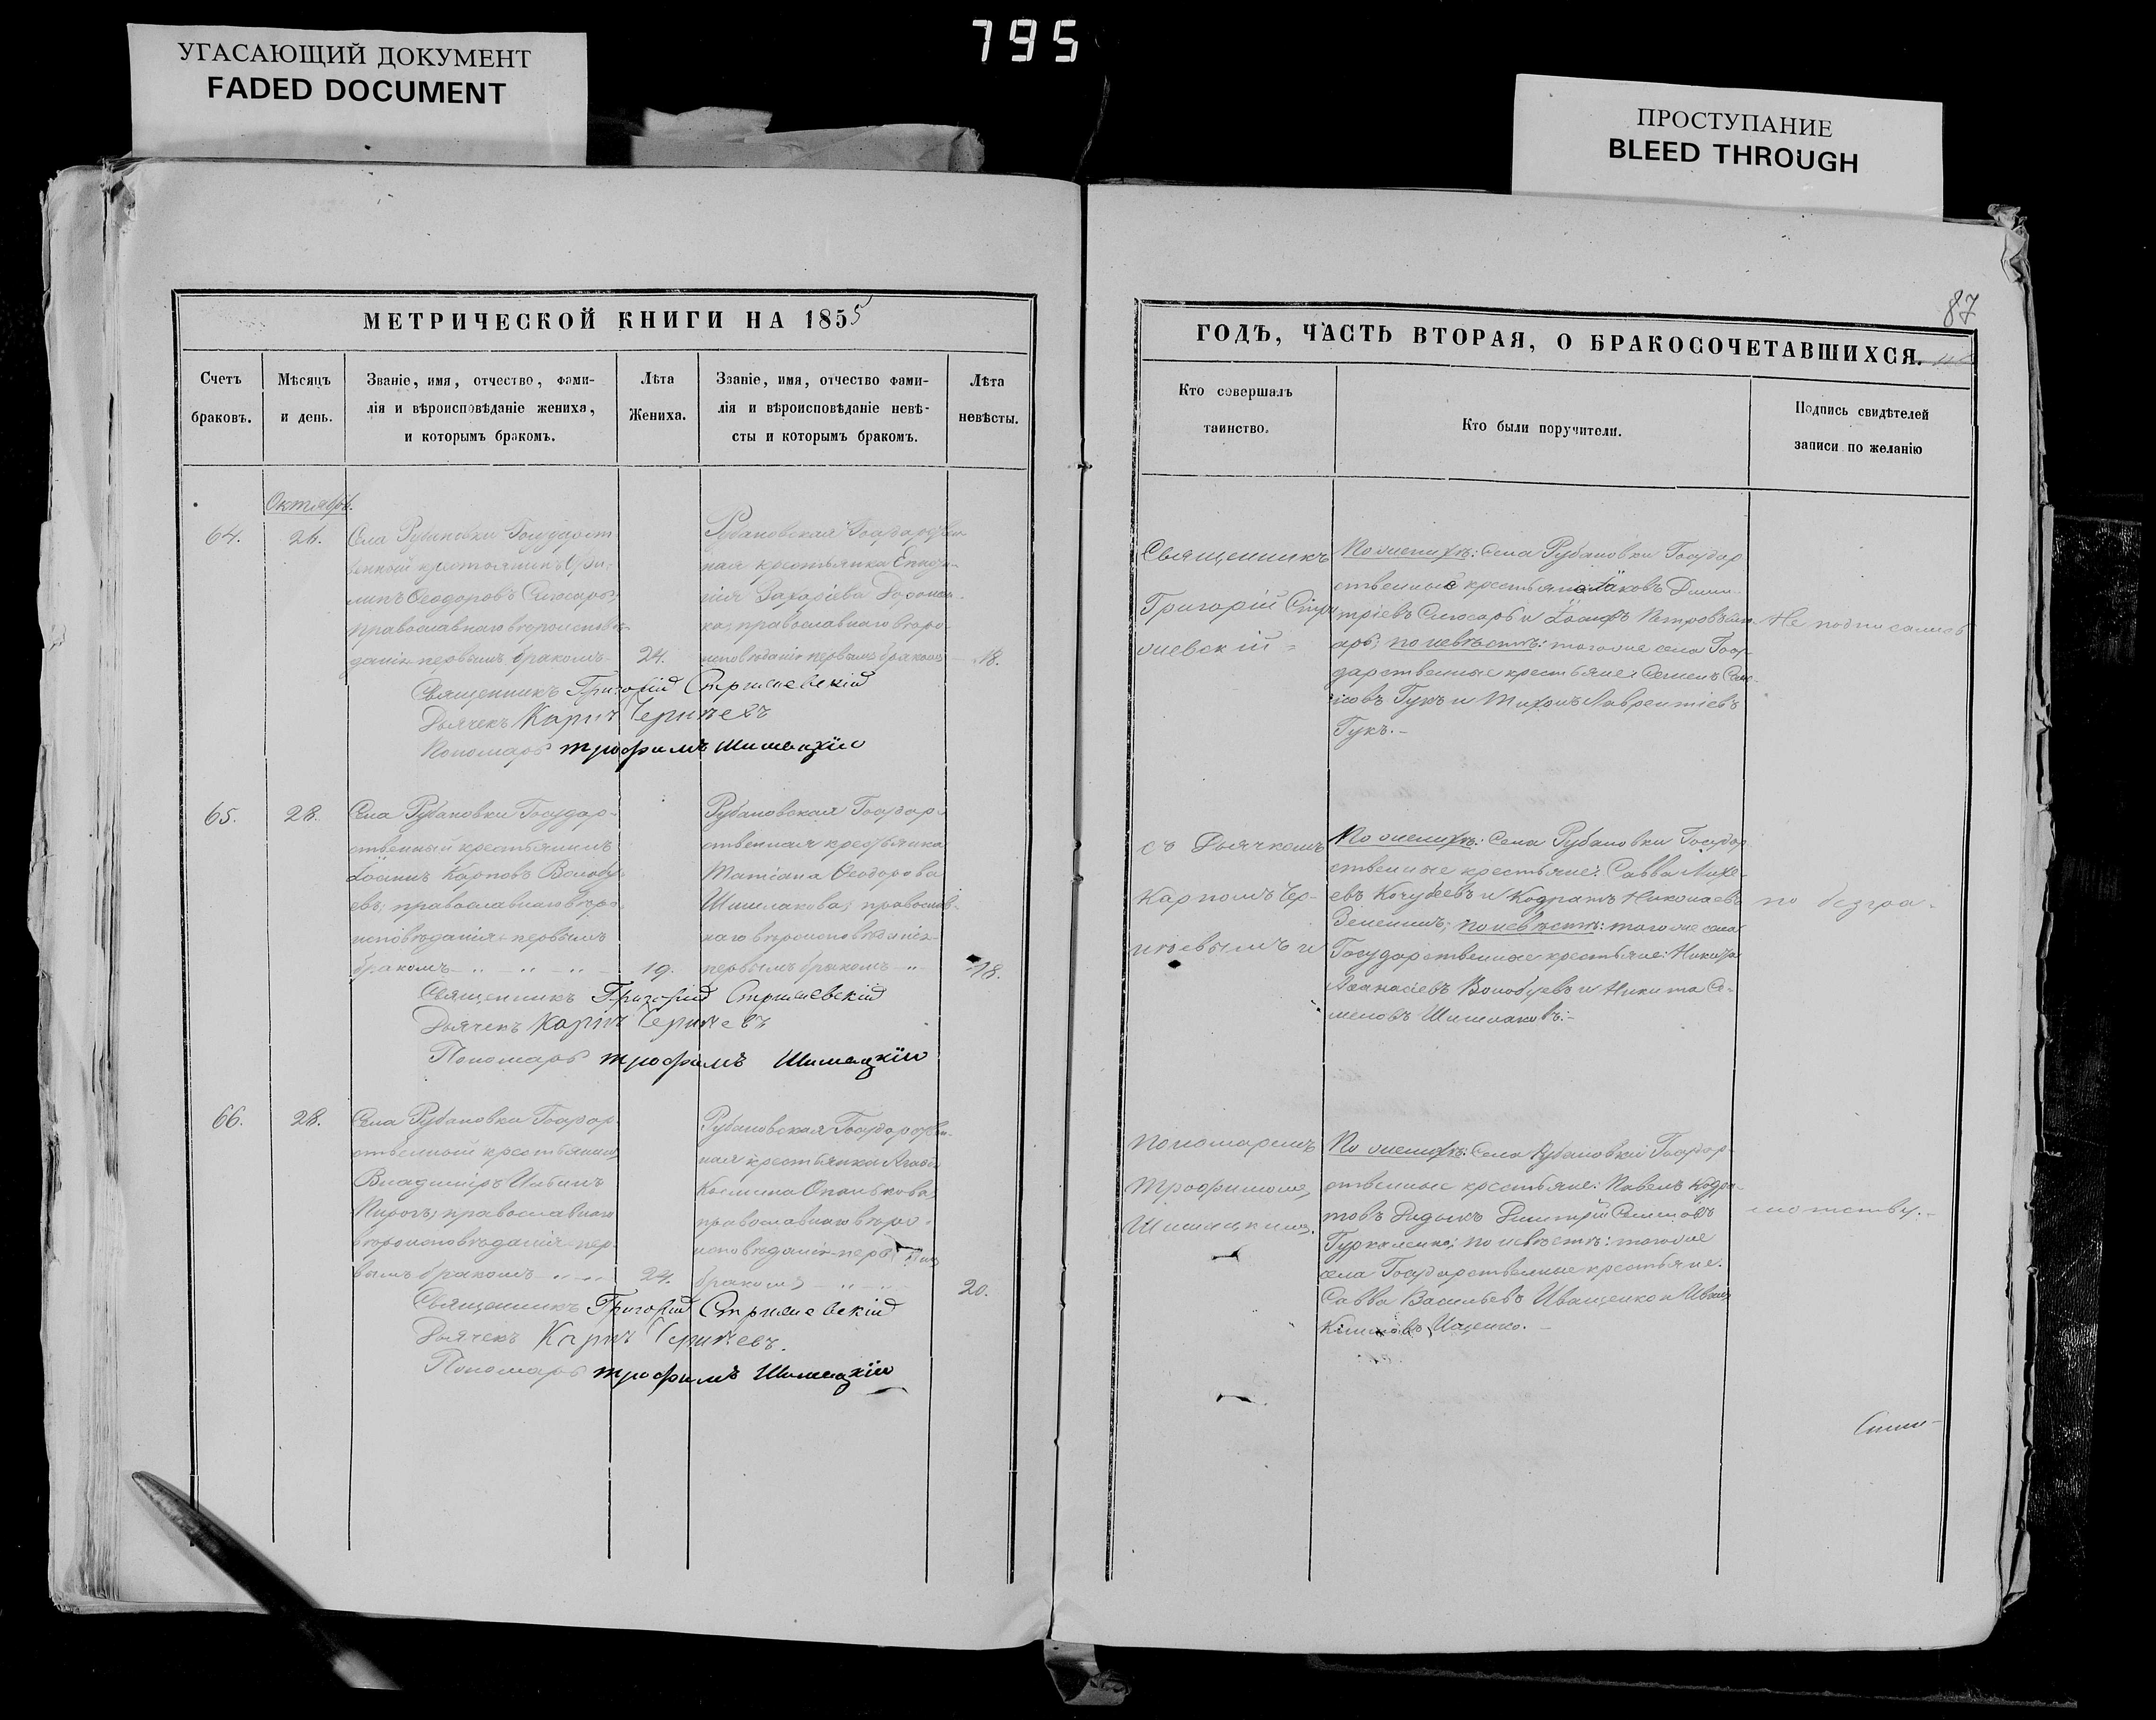 УГАСАЮЩИЙ ДОКУМЕНТ
FADED DOCUMENT
795
ПРОСТУПАНИЕ
BLEED THROUGH
МЕТРИЧЕСКОЙ КНИГИ НА 1855
Счетъ
браковъ.
Мѣсяцъ
и день.
Званіе, имя, отчество, фами-
лія и вѣроисповѣданіе жениха,
и которымъ бракомъ.
Лѣта
Жениха.
Званіе, имя, отчество фами-
лія и вѣроисповѣданіе невѣ-
сты и которымъ бракомъ.
Лѣта
невѣсты.
Октябрь.
64.
Села Рубановки Государст
венной крестьянинъ
Ѳеодоровъ Слюсарь,
православнаго вѣроисповѣ-
данія первымъ бракомъ
24.
Рубановская Государствен
ная крестьянка
Захаріева
православнаго вѣро-
исповѣданія первымъ бракомъ
18.
Священникъ Григорій Стрижевскій
Дьячекъ Карпъ Чернѣевъ
Пономарь Трофимъ Шишацкій
65.
28.
Села Рубановки Государ-
ственный крестьянинъ
Іоаннъ Карповъ Волобу-
евъ; православнаго вѣро-
исповѣданія первымъ
бракомъ
19.
Рубановская Государ-
ственная крестьянка
Татіана Ѳеодорова
Шишлакова; православ-
наго вѣроисповѣданія
первымъ бракомъ
18.
Священникъ Григорій Стрижевскій
Дьячекъ Карпъ Чернѣевъ
Пономарь Трофимъ Шишацкій
66.
28.
Села Рубановки Государ-
ственной крестьянинъ
Владиміръ Ильинъ
Пирогъ, православнаго
вѣроисповѣданія пер-
вымъ бракомъ
Рубановская Государствен-
ная крестьянка Агафія
православнаго вѣро-
исповѣданія первымъ
бракомъ
20.
Священникъ Григорій Стрижевскій
Дьячекъ Карпъ Чернѣевъ.
Пономарь Трофимъ Шишацкій
87
ГОДЪ, ЧАСТЬ ВТОРАЯ, О БРАКОСОЧЕТАВШИХСЯ.
Кто совершалъ
таинство.
Кто были поручители.
Подпись свидѣтелей
записи по желанію
Священникъ
Григорій Стри
жевскій
съ Дьячкомъ
Карпомъ Чер-
нѣевымъ и
пономаремъ
Трофимомъ
Шишацкимъ.
По женихѣ: Села Рубановки Государ
ственные крестьяне Іаковъ Дими-
тріевъ Слюсарь и Іосифъ Петровъ
по невѣстѣ: тогоже села Госу-
дарственные крестьяне: Семенъ
Гукъ и Тихонъ Лаврентіевъ
Гукъ.-
По женихѣ: Села Рубановки Государ
ственные крестьяне: Савва Михе-
евъ Кочубеевъ и Кодратъ Николаевъ
по невѣстѣ: тогоже села
Государственные крестьяне: Никита
Аѳанасіевъ Волобуевъ и Никита Се-
меновъ Шишлаковъ.-
По женихѣ: Села Рубановки Государ-
ственные крестьяне: Павелъ Кодра-
товъ Дидыкъ Димитрій
по невѣстѣ: тогоже
села Государственные крестьяне:
Савва Васильевъ Иващенко и Иванъ
Ищенко.-
Не подписались
по безгра-
мотству.-